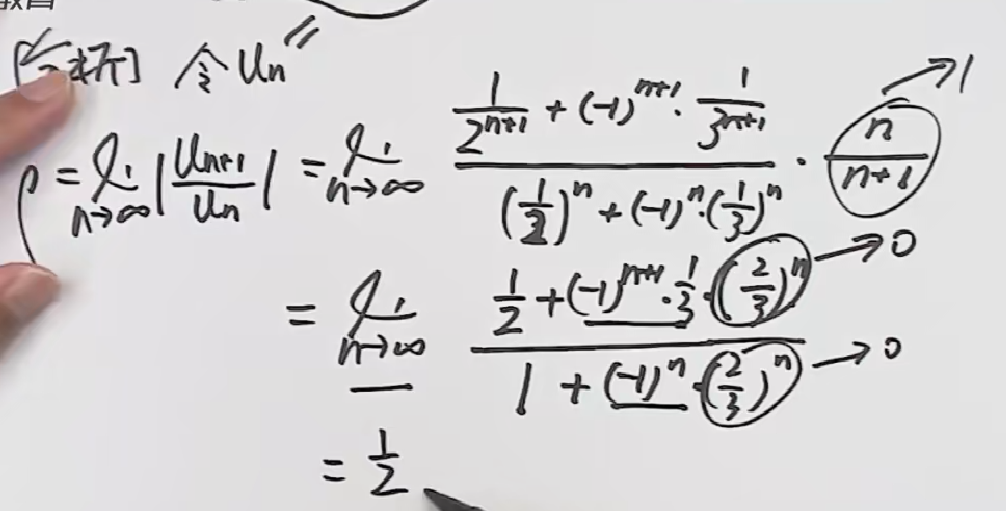 教育
[分析] 令Un"
ρ = lim n→∞ |Un+1 / Un| = lim n→∞ (1/2^(n+1) + (-1)^(n+1) · 1/3^(n+1)) / ((1/2)^n + (-1)^n · (1/3)^n) · n/(n+1) → 1
= lim n→∞ (1/2 + (-1)^(n+1) · 1/3 · (2/3)^n → 0) / (1 + (-1)^n · (2/3)^n → 0)
= 1/2